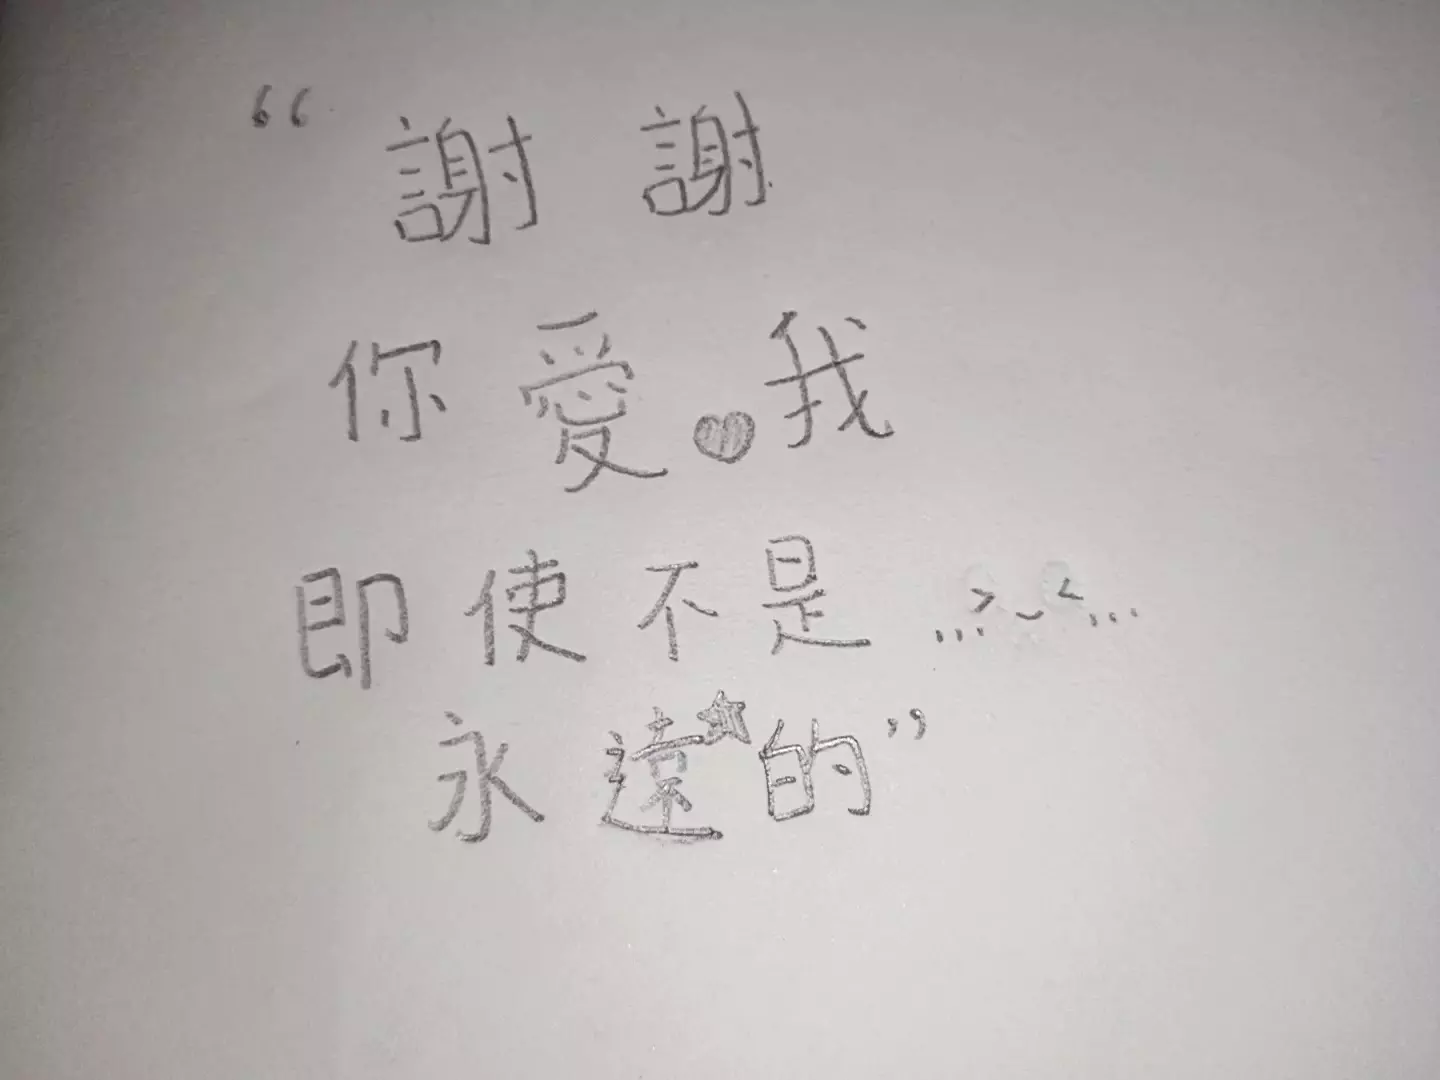 “謝謝
你愛我
即使不是...>‿<...
永遠的”